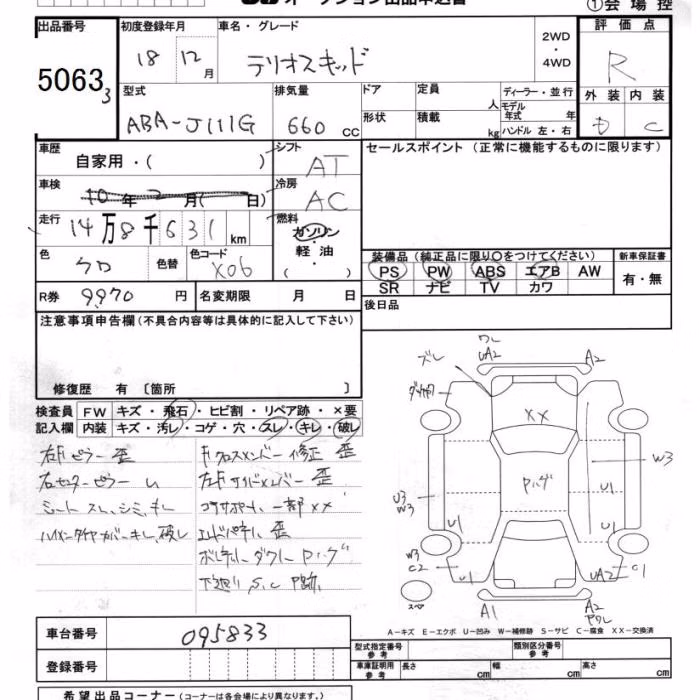 オークション出品申込書 ①会場控
出品番号 5063 3
初度登録年月 18 12月
車名・グレード テリオスキッド
2WD・4WD
評価点 R
外装 内装 C
型式 ABA-J111G
排気量 660 cc
ドア 形状
定員 人
積載 kg
ディーラー・並行
モデル年式 年
ハンドル 左・右
車歴 自家用・( )
シフト AT
車検 10年 2月( 日)
冷房 AC
走行 14万8千631km
燃料 ガソリン・軽油・( )
色 クロ 色替 色コード X06
R券 9970円 名変期限 月 日
セールスポイント(正常に機能するものに限ります)
装備品(純正品に限り○をつけてください)
PS PW ABS エアB AW
SR ナビ TV カワ
新車保証書 有・無
後日品
注意事項申告欄(不具合内容等は具体的に記入して下さい)
修復歴 有〔箇所 〕
検査員記入欄
FW キズ・飛石・ヒビ割・リペア跡・×要
内装 キズ・汚レ・コゲ・穴・スレ・キレ・破レ
左Fピラー 歪
右センターピラー 〃
シート スレ、シミ、キレ
ハイマンタイヤカバーキレ、破レ
Fクロスメンバー修正 歪
左Fサイドメンバー 歪
コアサポート 一部 XX
エンドパネル 歪
下廻り S、C P跡
ワレ
UA2 A2
ズレ
XX
W3
Pハゲ
U3
W3
U1
U1
U1
W3
C2 U1 UA2 C1
スペア
A1 A2
ワレ
A-キズ E-エクボ U-凹み W-補修跡 S-サビ C-腐食 XX-交換済
車台番号 095833
登録番号
型式指定番号 参考
類別区分番号 参考
車庫証明用 参考 長さ cm 幅 cm 高さ cm
希望出品コーナー(コーナーは各会場により異なります。)